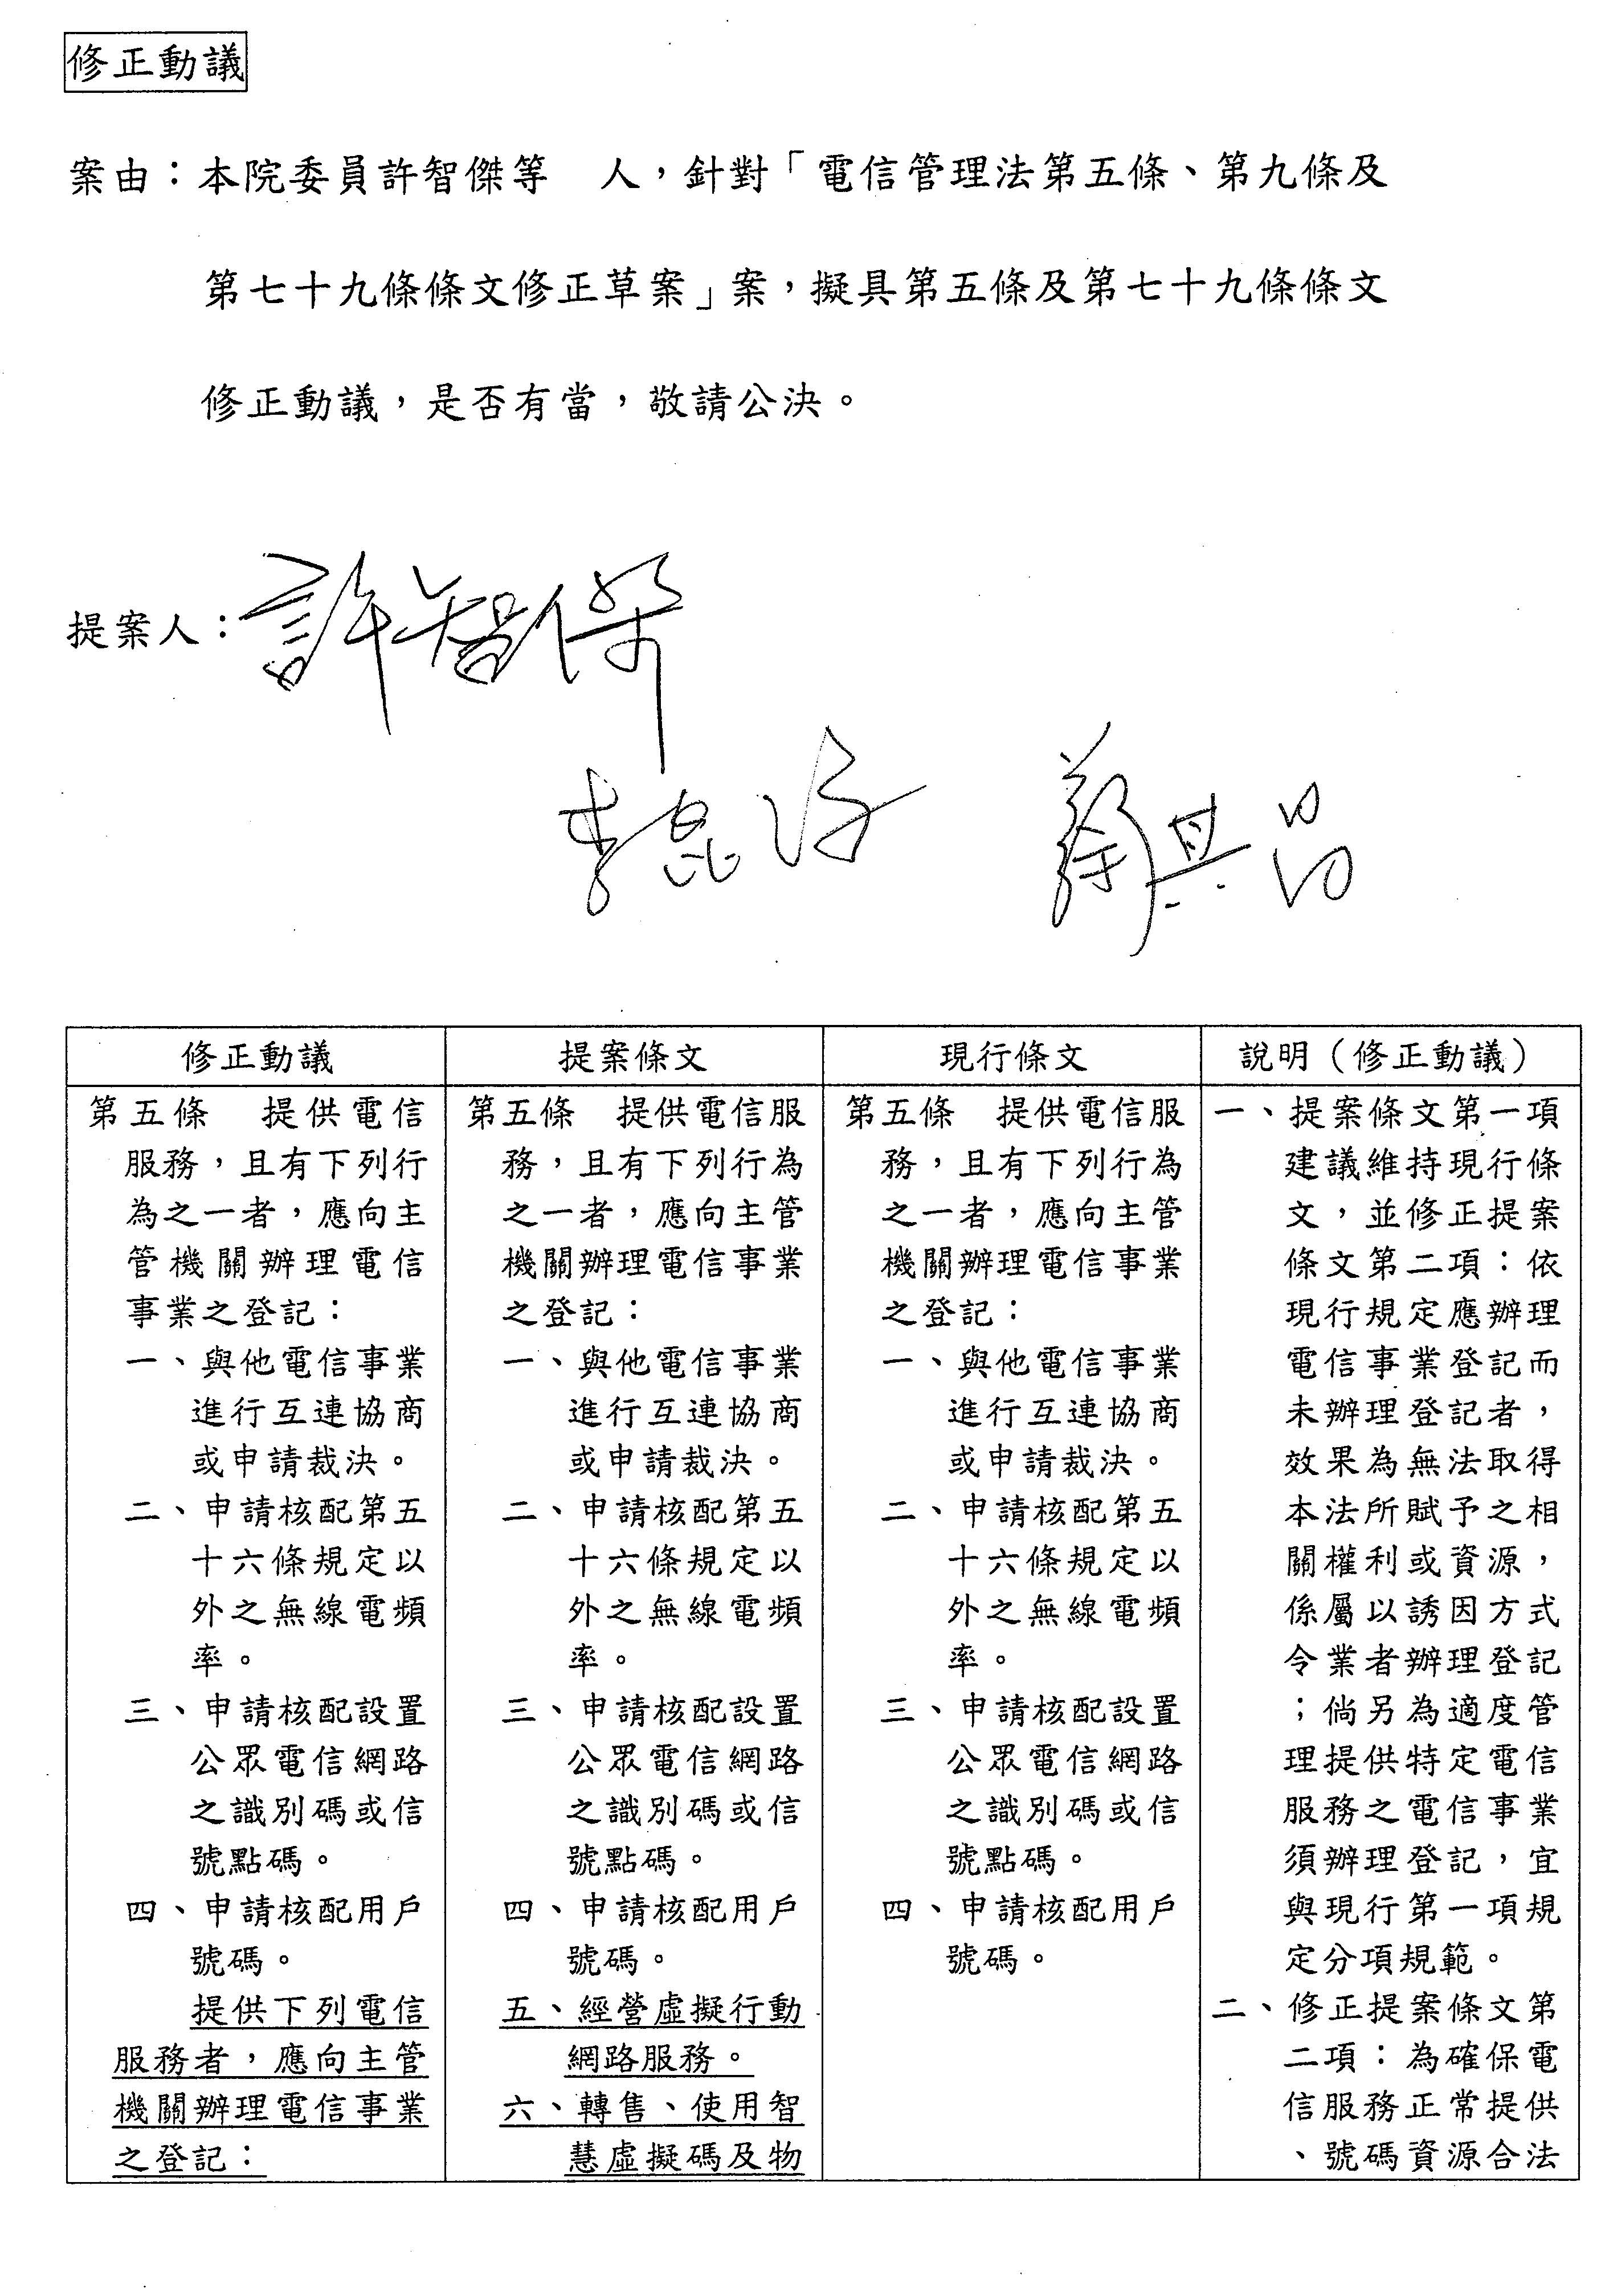 修正動議
案由：本院委員許智傑等　人，針對「電信管理法第五條、第九條及
第七十九條條文修正草案」案，擬具第五條及第七十九條條文
修正動議，是否有當，敬請公決。
提案人：許智傑
李昆澤　蔡其昌
修正動議
第五條　提供電信
服務，且有下列行
為之一者，應向主
管機關辦理電信
事業之登記：
一、與他電信事業
進行互連協商
或申請裁決。
二、申請核配第五
十六條規定以
外之無線電頻
率。
三、申請核配設置
公眾電信網路
之識別碼或信
號點碼。
四、申請核配用戶
號碼。
提供下列電信
服務者，應向主管
機關辦理電信事業
之登記：
提案條文
第五條　提供電信服
務，且有下列行為
之一者，應向主管
機關辦理電信事業
之登記：
一、與他電信事業
進行互連協商
或申請裁決。
二、申請核配第五
十六條規定以
外之無線電頻
率。
三、申請核配設置
公眾電信網路
之識別碼或信
號點碼。
四、申請核配用戶
號碼。
五、經營虛擬行動
網路服務。
六、轉售、使用智
慧虛擬碼及物
現行條文
第五條　提供電信服
務，且有下列行為
之一者，應向主管
機關辦理電信事業
之登記：
一、與他電信事業
進行互連協商
或申請裁決。
二、申請核配第五
十六條規定以
外之無線電頻
率。
三、申請核配設置
公眾電信網路
之識別碼或信
號點碼。
四、申請核配用戶
號碼。
說明（修正動議）
一、提案條文第一項
建議維持現行條
文，並修正提案
條文第二項：依
現行規定應辦理
電信事業登記而
未辦理登記者，
效果為無法取得
本法所賦予之相
關權利或資源，
係屬以誘因方式
令業者辦理登記
；倘另為適度管
理提供特定電信
服務之電信事業
須辦理登記，宜
與現行第一項規
定分項規範。
二、修正提案條文第
二項：為確保電
信服務正常提供
、號碼資源合法